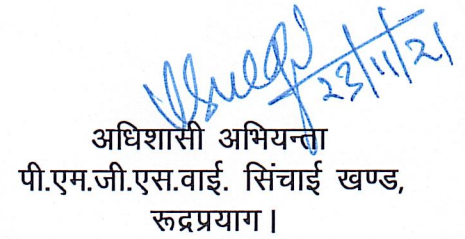 23/11/21
अधिशासी अभियन्ता
पी.एम.जी.एस.वाई. सिंचाई खण्ड,
रूद्रप्रयाग।